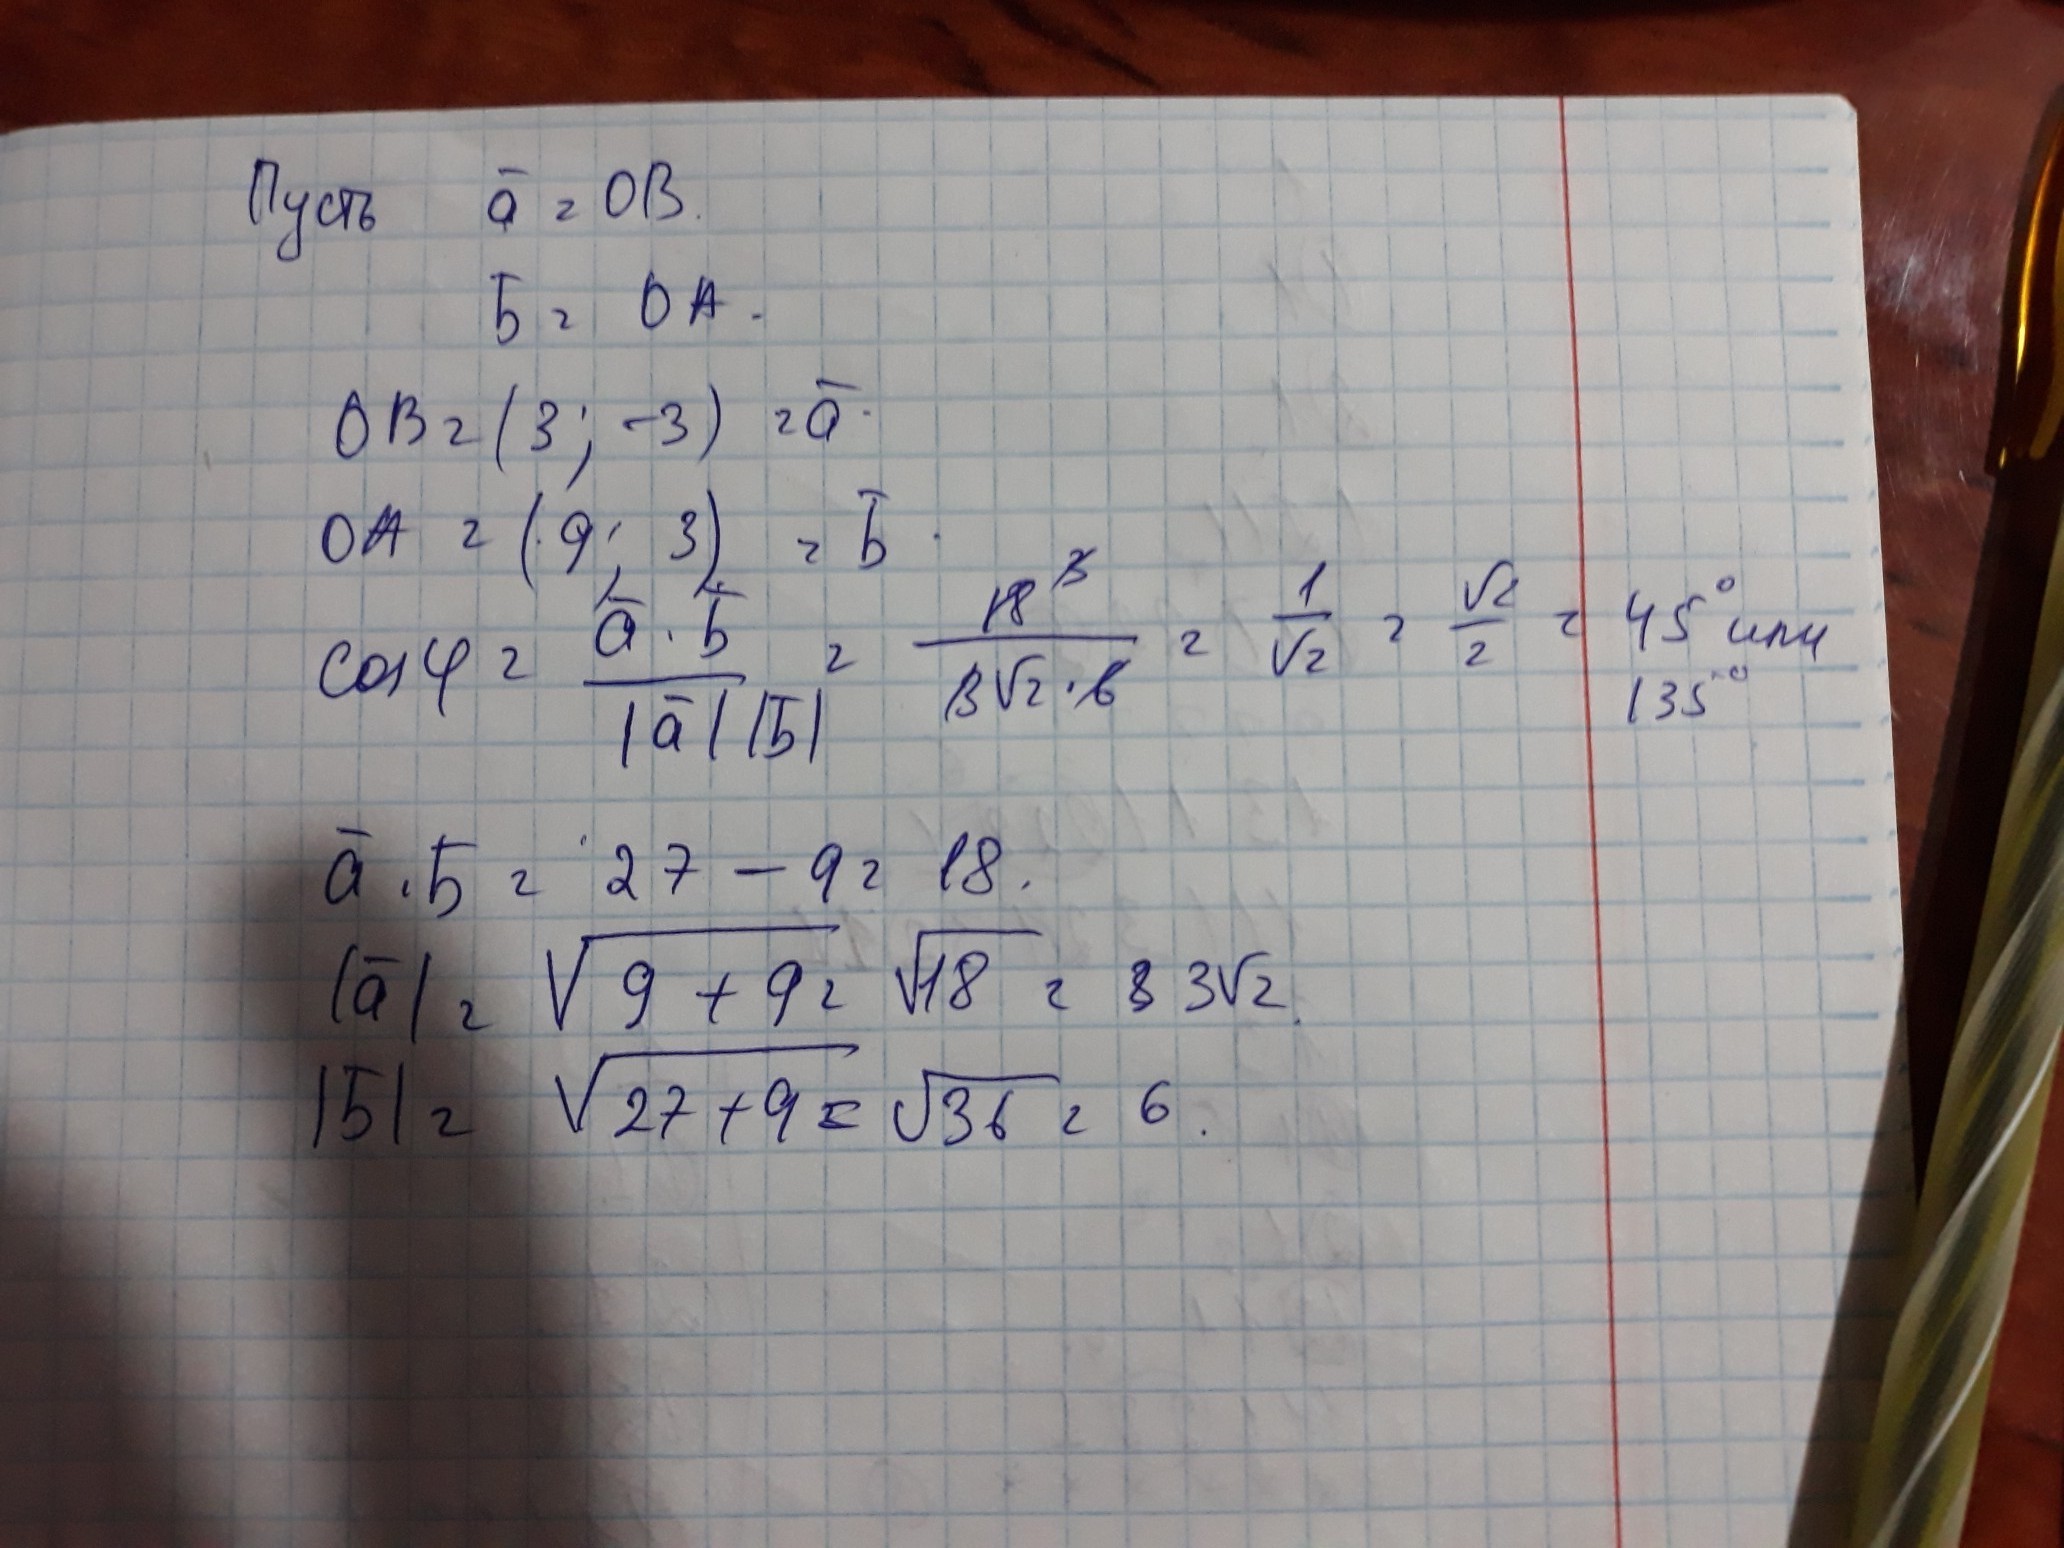 Пусть a̅ = OB.
b̅ = OA.
OB = (3; -3) = a̅.
OA = (9; 3) = b̅.
cos φ = a̅·b̅ / |a̅| |b̅| = 18 3 / 3√2·6 = 1/√2 = √2/2 = 45° или
135°
a̅·b̅ = 27 - 9 = 18.
|a̅| = √9+9 = √18 = 3 3√2.
|b̅| = √27+9 = √36 = 6.